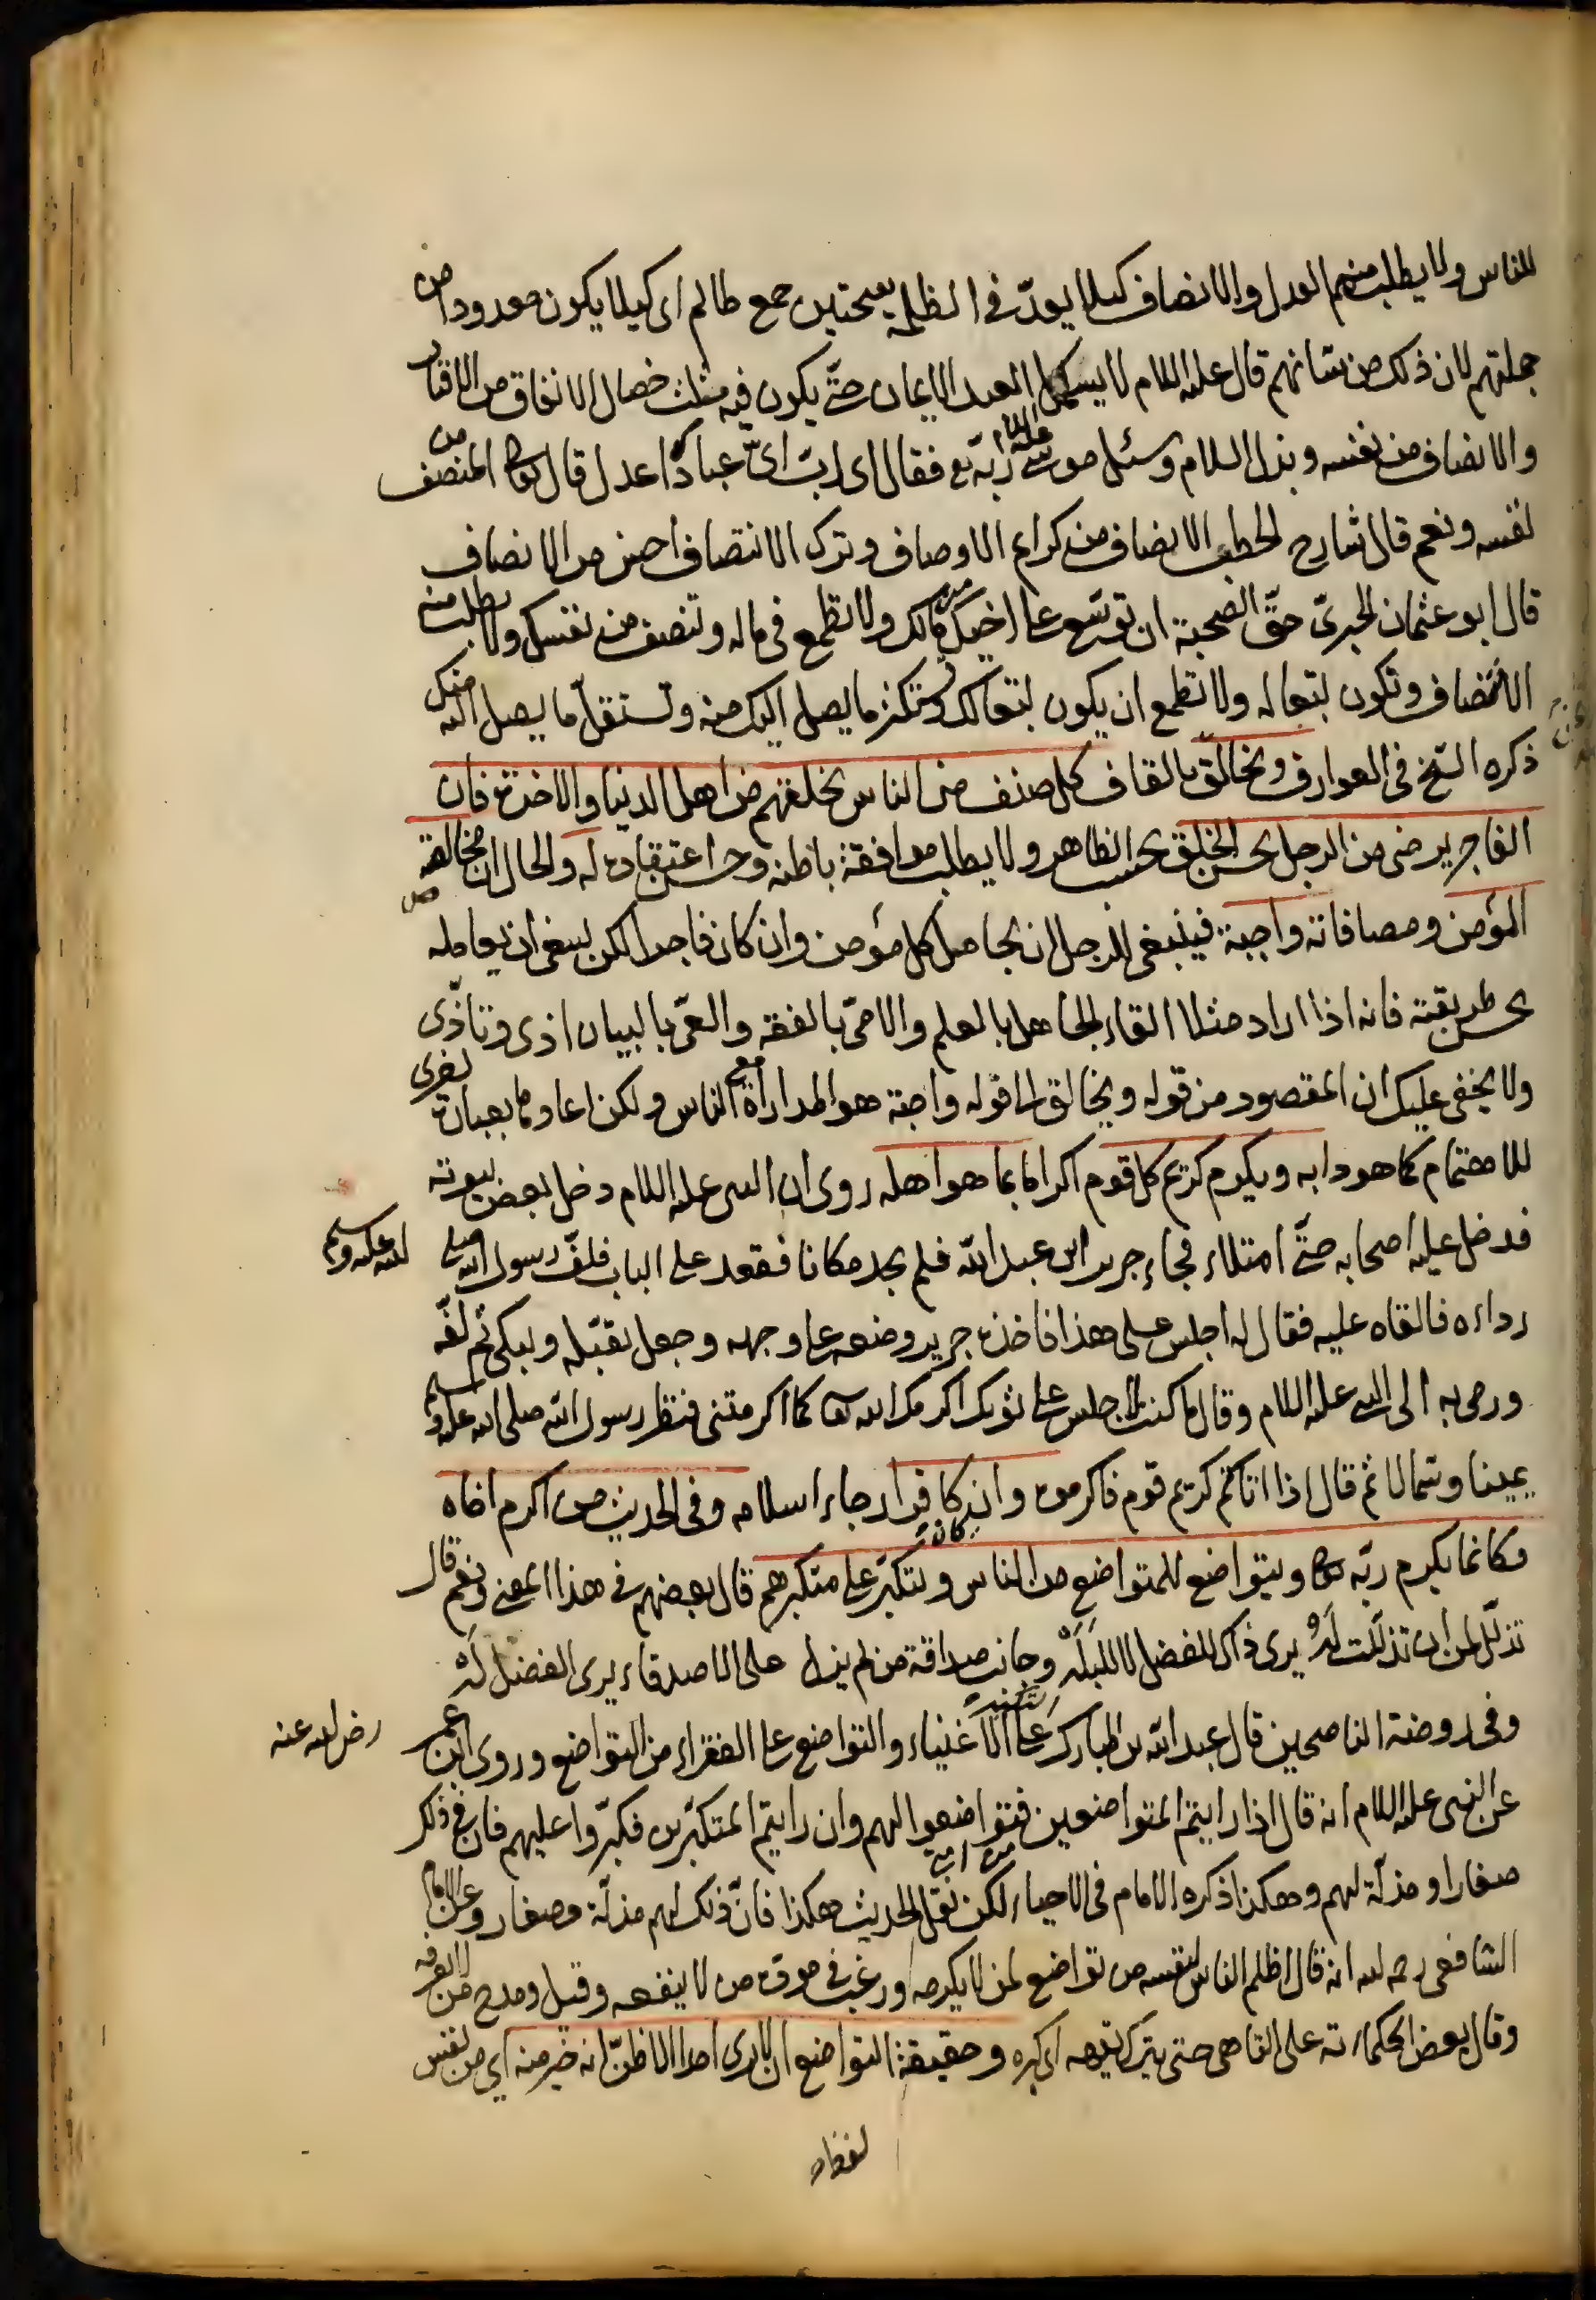 للناس ولا يطلب منهم العدل والانصاف كيلا يعدّ في الظلمة بفتحتين جمع ظالم اى كيلا يكون معدودا من
جملتهم لان ذلك من شانهم قال عليه السلام لا يستكمل العبد الايمان حتّى يكون فيه ثلث خصال الانفاق من الاقتار
والانصاف من نفسه وبذل السلام وسئل موسى عليه السلام ربّه تع فقال اى ربّ اىّ عبادك اعدل قال تعالى المنصف من
نفسه ونعم قال شارح الخطب الانصاف من كرام الاوصاف وترك الانتصاف احسن من الانصاف
قال ابو عثمان الحيرىّ حقّ الصحبة ان توسّع على اخيك من مالك ولا تطمع في ماله وتنصف من نفسك ولا تطلب منه
الانصاف وتكون تبعا له ولا تطمع ان يكون تبعا لك وتستكثر ما يصل اليك منه وتستقلّ ما يصل اليه منك
ذكره الشيخ في العوارف ويخالق بالقاف كل صنف من الناس بخلقهم من اهل الدنيا والاخرة فان
الفاجر يرضى من الرجل بحسن الخلق بحسب الظاهر ولا يطلب موافقة باطنه وحسن اعتقاده له والحال ان مخالقة
المؤمن ومصافاته واجبة فينبغى للرجل ان يجامل كل مؤمن وان كان فاجرا لكن ينبغى ان يعامله
بحسن طريقته فانه اذا اراد مثلا القاء الجاهل بالعلم والامىّ بالفقه والعىّ بالبيان اذى وتأذّى
ولا يخفى عليك ان المقصود من قوله ويخالق الى قوله واجبة هو المداراة مع الناس ولكن اعاده بعبارة اخرى
للاهتمام كما هو دابه ويكرم كريم كل قوم اكراما بما هو اهله روى ان النبى عليه السلام دخل بعض بيوته
فدخل عليه اصحابه حتّى امتلاء فجاء جرير ابن عبد الله فلم يجد مكانا فقعد على الباب فلفّ رسول الله صلى الله عليه وسلم
رداءه فالقاه عليه فقال له اجلس على هذا فاخذه جرير وضعه على وجهه وجعل يقبّله ويبكى ثم لفّه
ورمى به الى النبى عليه السلام وقال ما كنت لاجلس على ثوبك اكرمك الله تعالى كما اكرمتنى فنظر رسول الله صلى الله عليه وسلم
يمينا وشمالا ثم قال اذا اتاكم كريم قوم فاكرموه وان كان كافرا رجاء اسلامه وفى الحديث من اكرم اخاه
فكانما يكرم ربّه تعالى ويتواضع للمتواضع من الناس ويتكبّر على متكبرهم قال بعضهم في هذا المعنى ونعم قال
تذلّل لمن ان تذلّلت لَهُ يرى ذاك للفضل لا للبَلَهْ وجانب صداقة من لم يزل على الاصدقاء يرى الفضل لَهْ
وفى روضة الناصحين قال عبد الله بن المبارك التكبر على الاغنياء والتواضع على الفقراء من التواضع وروى ابن عمر رضى الله عنه
عن النبى عليه السلام انه قال اذا رايتم المتواضعين فتواضعوا لهم وان رايتم المتكبّرين فكبّروا عليهم فان في ذلك
صغارا ومذلّة لهم وهكذا ذكره الامام فى الاحياء لكن نقل الحديث هكذا فانّ ذلك لهم مذلّة وصغار وعن الامام
الشافعى رحمه الله انه قال اظلم الناس لنفسه من تواضع لمن لا يكرمه ورغب في مودّة من لا ينفعه وقبل ومدح من لا يعرفه
وقال بعض الحكماء ته على التاهى حتى يترك تيهه اى كبره وحقيقة التواضع ان لا يرى احدا الا ظنّ انه خير منه اى من نفس